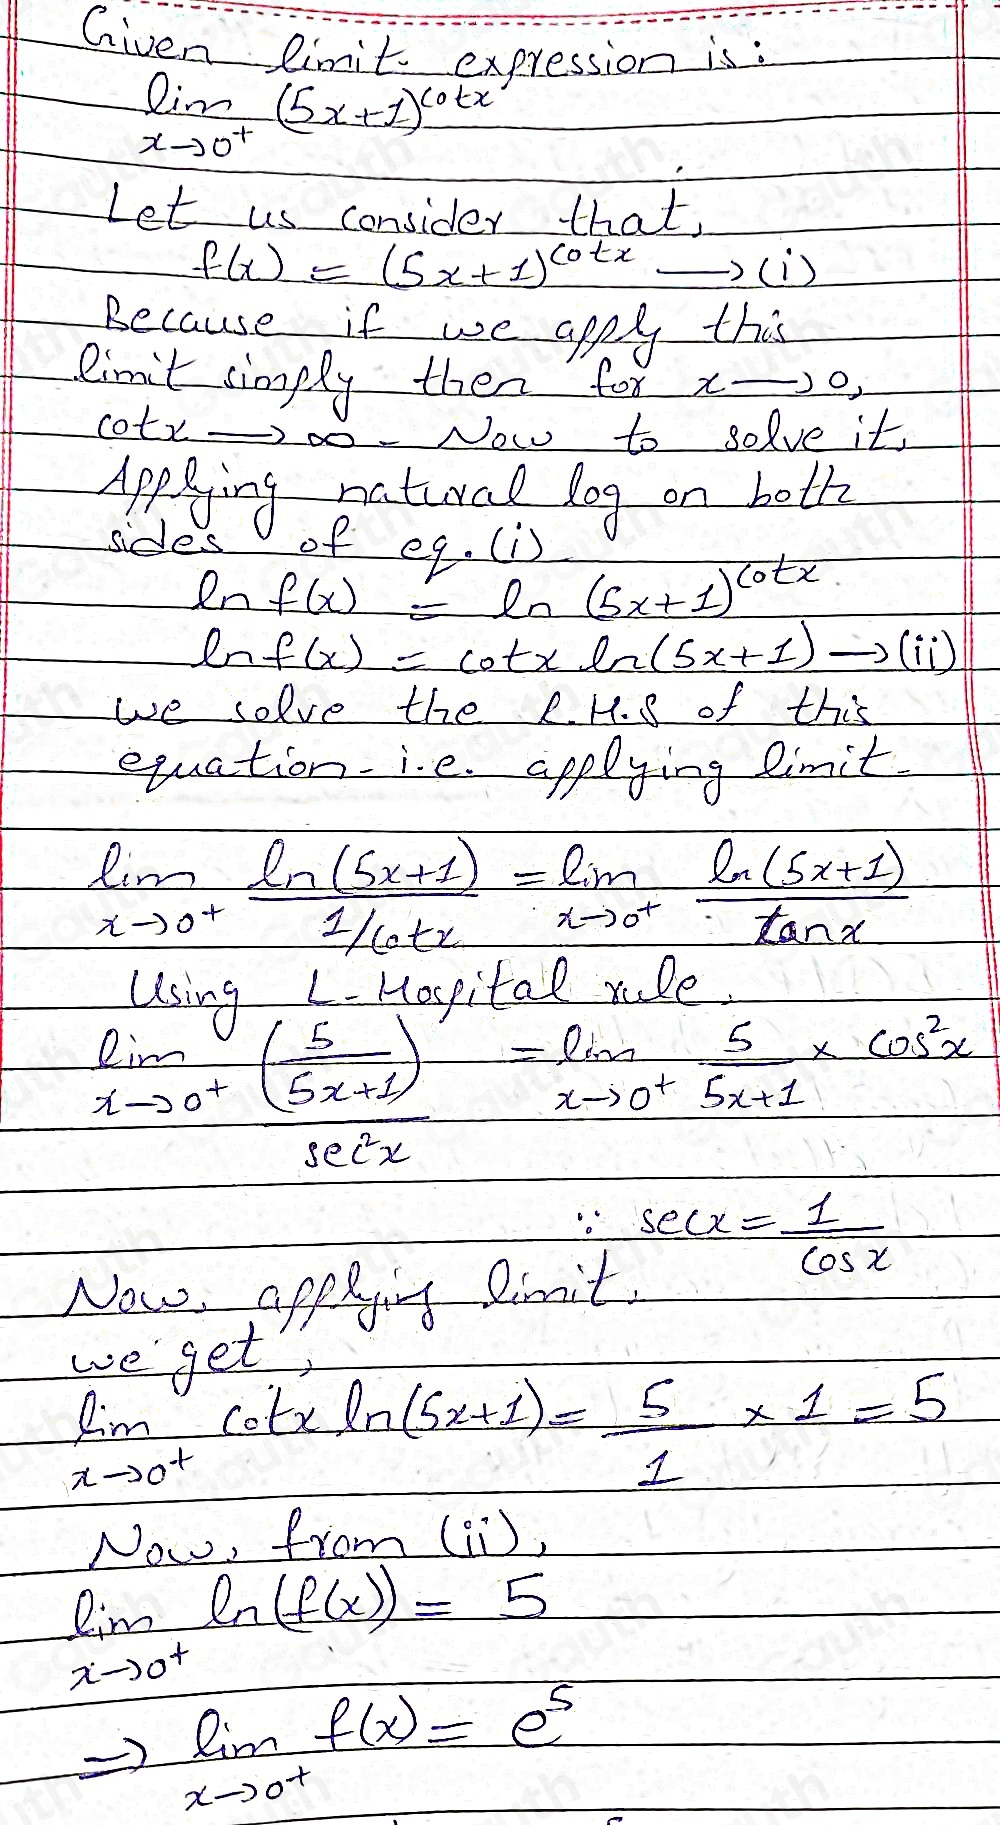 Given limit expression is:
lim (5x+1)^cotx
x→0+
Let us consider that,
f(x) = (5x+1)^cotx → (i)
Because if we apply this
limit simply then for x→0,
cotx → ∞ - Now to solve it,
Applying natural log on both
sides of eq. (i)
ln f(x) = ln (5x+1)^cotx
ln f(x) = cotx ln(5x+1) → (ii)
we solve the R.H.S of this
equation - i.e. applying limit -
lim ln(5x+1) / (1/cotx) = lim ln(5x+1) / tanx
x→0+ x→0+
Using L-Hospital rule,
lim (5/(5x+1)) / sec²x = lim 5/(5x+1) × cos²x
x→0+ x→0+
∵ secx = 1/cosx
Now, applying limit,
we get,
lim cotx ln(5x+1) = 5/1 × 1 = 5
x→0+
Now, from (ii),
lim ln(f(x)) = 5
x→0+
⇒ lim f(x) = e^5
x→0+